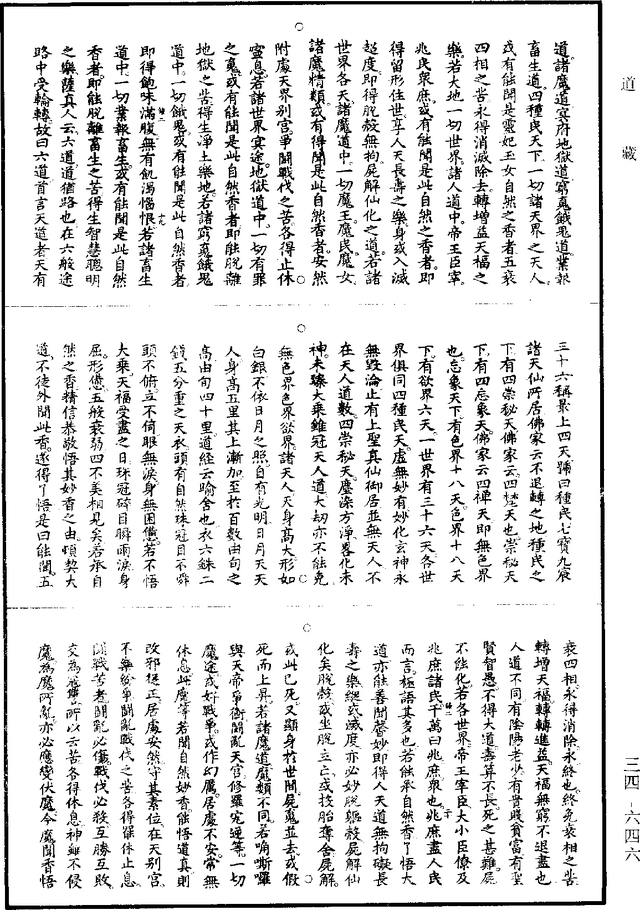 道藏
道諸魔道宮府地獄道窮䰟餓鬼道業報
畜生道四種民天下一切諸天界之天人
或有能聞是靈妃玉女自然之香者五衰
四相之苦永得消滅除去轉增益天福之
樂若大地一切世界諸人道中帝王臣宰
兆民衆庶或有能聞是自然之香者即
得留形住世享人天長壽之樂身或入滅
超度即得脫殼無拘屍解仙化之道若諸
世界各天諸魔道中一切魔王魔民魔女
諸魔精類或有得聞是自然香者安然
附處天界别宫爭鬬戰伐之苦各得止休
寧息若諸世界冥途地獄道中一切有罪
之䰟或有能聞是此自然香者即能脫離
地獄之苦得生淨土樂地若諸窮䰟餓鬼
道中一切餓鬼或有能聞是此自然香者
即得飽味滿腹無有飢渴惱恨若諸畜生
道中一切業報畜生或有能聞是此自然
香者即能脫離畜生之苦得生智慧聰明
之樂薩真人云六道道猶路也在六般途
路中受輪轉故曰六道首言天道者天有
三十六稱最上四天號曰種民七寶九宸
諸天仙所居佛家云不退轉之地種民之
下有四崇祕天佛家云四梵天也崇祕天
下有四忘象天佛家云四禪天即無色界
也忘象天下有色界十八天色界十八天
下有欲界六天一世界有三十六天各世
界俱同四種民天虛無妙有妙化玄神永
無毀淪止有上聖真仙御居並無天人不
在天人道數四崇祕天塵染方淨畧化未
神未臻大乘雖冠天人道大刧亦不能免
無色界色界欲界諸天人天身高大形如
白銀不依日月之照自有光明日月天天
人身高五里其上漸加至於百數由旬之
高由旬四十里道經云喻舍也衣六銖二
銖五分重之天衣頭有自然珠冠目不瞬
頭不俯立不倚眼無淚身無困憊若不悟
大乘天福受盡之日珠冠碎目瞬雨淚身
屈形憊五般衰弱四不美相見矣若承自
然之香精信恭敬悟其妙香之由煩契大
道不徒外聞此香遂得了悟是曰能聞五
衰四相永得消除永終也終免衰相之苦
轉增天福轉轉進益天福無窮不退盡也
人道不同有陰陽老少有貴賤貧富有聖
賢智愚不得大道壽算不長死之甚難屍
不能化若各世界帝王宰臣大小臣僚及
兆庶諸民千萬曰兆庶衆也兆庶盡人民
而言極語其多也若能承自然香了悟大
道亦能善聞香妙即得人天道無拘礙長
壽之樂縱或滅度亦必妙脫軀殼屍解仙
化矣脫殼或坐脫立亡或投胎奪舍屍解
或此已死又顯身於世間屍䰟並去或假
死而上昇若諸魔道魔類不同若喃嘶囉
與天帝爭衡鬬亂天官修羅冤通等一切
魔途或好戰爭或作幻厲居處不安常無
休息此魔等若聞自然妙香能悟道真則
改邪從正居處安然守其素位在天别宫
不樂紛爭鬬亂戰伐之苦各得羅休止息
鬬戰苦者鬬亂必儀戰伐必殺互勝互敗
交為寇讐所以云苦各得休息神無不侵
魔為魔所亂亦必應變伏魔今魔聞香悟
三四-六四六